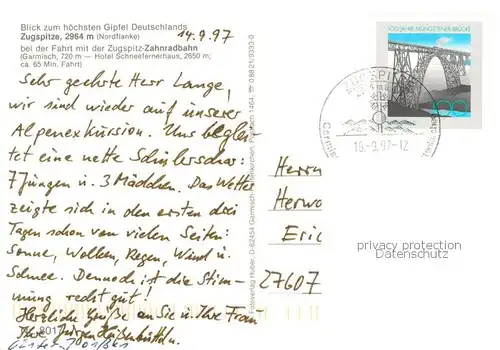 Blick zum höchsten Gipfel Deutschlands
Zugspitze, 2964 m (Nordflanke)
14.9.97
bei der Fahrt mit der Zugspitz-Zahnradbahn
(Garmisch, 720 m — Hotel Schneefernerhaus, 2650 m;
ca. 65 Min. Fahrt)
Sehr geehrte Herr Lange,
wir sind wieder auf unserer
Alpenexkursion. Uns beglei-
tet eine nette Schülerschar:
7 Jungen u. 3 Mädchen. Das Wetter
zeigte sich in den ersten drei
Tagen schon von vielen Seiten:
Sonne, Wolken, Regen, Wind u.
Schnee. Dennoch ist die Stim-
mung recht gut!
Herzliche Grüße an Sie u. Ihre Frau
Ihre Jürgen
8017
100 JAHRE MÜNGSTENER BRÜCKE
100
ZUGSPITZE
16.-9.97-12
Herrn
Herwo
Eric
27607
privacy protection
Datenschutz